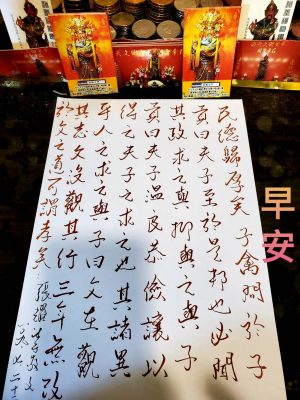 民德歸厚矣 子禽問於子
貢曰夫子至於是邦也必聞
其政求之與抑與之與 子
貢曰夫子溫良恭儉讓以
得之夫子之求之也其諸異
乎人之求之與子曰父在觀
其志父沒觀其行三年無改
於父之道可謂孝矣
早安